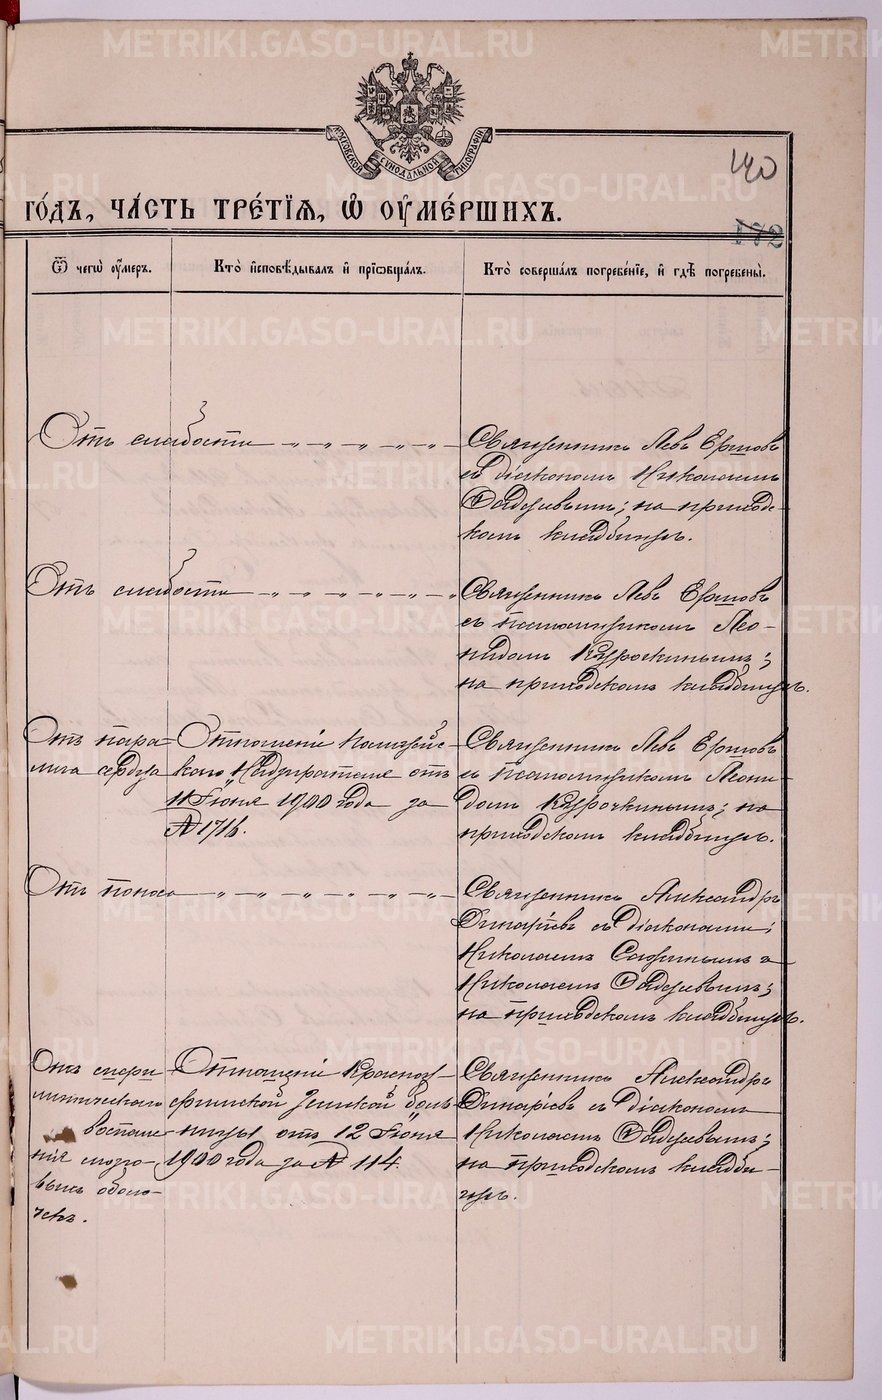 METRIKI.GASO-URAL.RU
МОСКОВСКОЙ СѴНОДАЛЬНОЙ ТИПОГРАФІИ
140
172
ГО́ДЪ, ЧА́СТЬ ТРЕ́ТІЯ, Ѽ ОУ҆МЕ́РШИХЪ.
Ѿ чегѡ̀ оу҆́меръ.
Кто̀ и҆сповѣ́дывалъ и҆ прїѡбща́лъ.
Кто̀ соверша́лъ погребе́нїе, и҆ гдѣ̀ погребены̀.
Отъ слабости
Священникъ Левъ Ершовъ
съ діакономъ Николаемъ
Ѳаддеевымъ; на приход-
скомъ кладбищѣ.
Отъ слабости
Священникъ Левъ Ершовъ
съ псаломщикомъ Лео-
нидомъ Курочкинымъ;
на приходскомъ кладбищѣ.
Отъ пара-
лича сердца
Отношеніе Полицейс-
каго Надзирателя отъ
11 Іюня 1900 года за
№ 1716.
Священникъ Левъ Ершовъ
съ псаломщикомъ Леони-
домъ Курочкинымъ; на
приходскомъ кладбищѣ.
Отъ поноса
Священникъ Александръ
съ діаконами;
Николаемъ и
Николаемъ Ѳаддеевымъ;
на приходскомъ кладбищѣ.
Отъ сифи-
литическаго
воспале-
нія мозго-
выхъ оболо-
чекъ.
Отношеніе Красноу-
фимской Земской боль-
ницы отъ 12 Іюня
1900 года за № 114.
Священникъ Александръ
съ діакономъ
Николаемъ Ѳаддеевымъ;
на приходскомъ кладби-
щѣ.